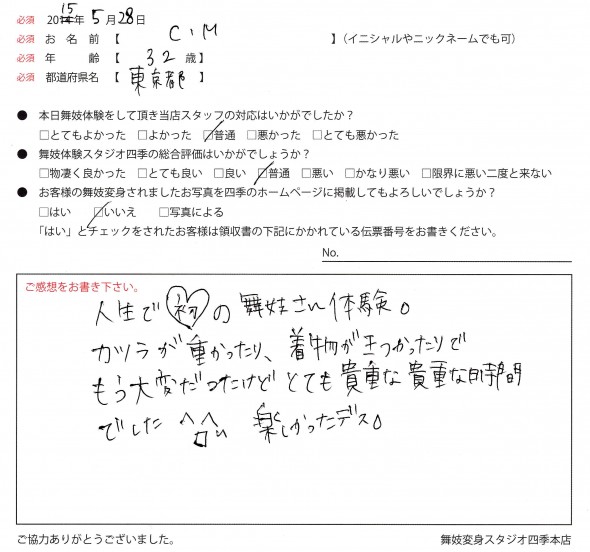 必須 2015年5月28日
必須 お名前【 C・M 】(イニシャルやニックネームでも可)
必須 年齢【 32歳】
必須 都道府県名【 東京都 】
● 本日舞妓体験をして頂き当店スタッフの対応はいかがでしたか?
□とてもよかった □よかった □普通 □悪かった □とても悪かった
● 舞妓体験スタジオ四季の総合評価はいかがでしょうか?
□物凄く良かった □とても良い □良い □普通 □悪い □かなり悪い □限界に悪い二度と来ない
● お客様の舞妓変身されましたお写真を四季のホームページに掲載してもよろしいでしょうか?
□はい □いいえ □写真による
「はい」とチェックをされたお客様は領収書の下記にかかれている伝票番号をお書きください。
No.
ご感想をお書き下さい。
人生で初の舞妓さん体験。
カツラが重かったり、着物がキつかったりで
もう大変だったけどとても貴重な貴重な時間
でした 楽しかったデス。
ご協力ありがとうございました。 舞妓変身スタジオ四季本店